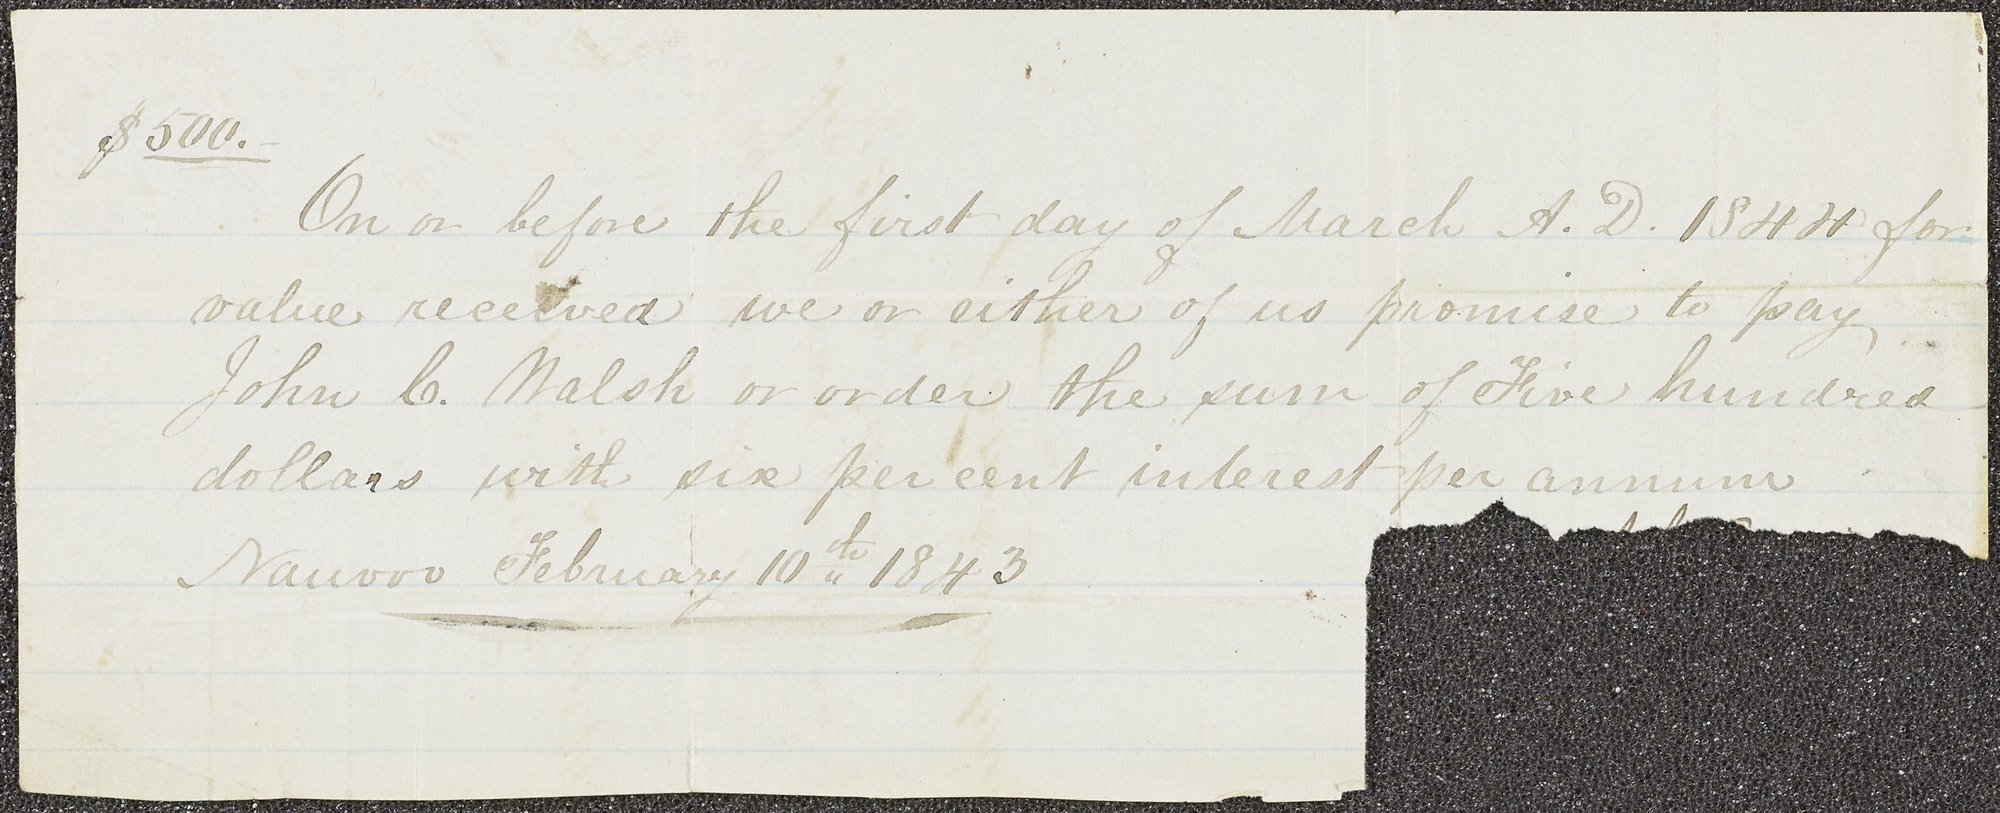 $500.—
On or before the first day of March A. D. 1844 for
value received we or either of us promise to pay
John C. Walsh or order the sum of Five hundred
dollars with six per cent interest per annum
Nauvoo February 10th 1843